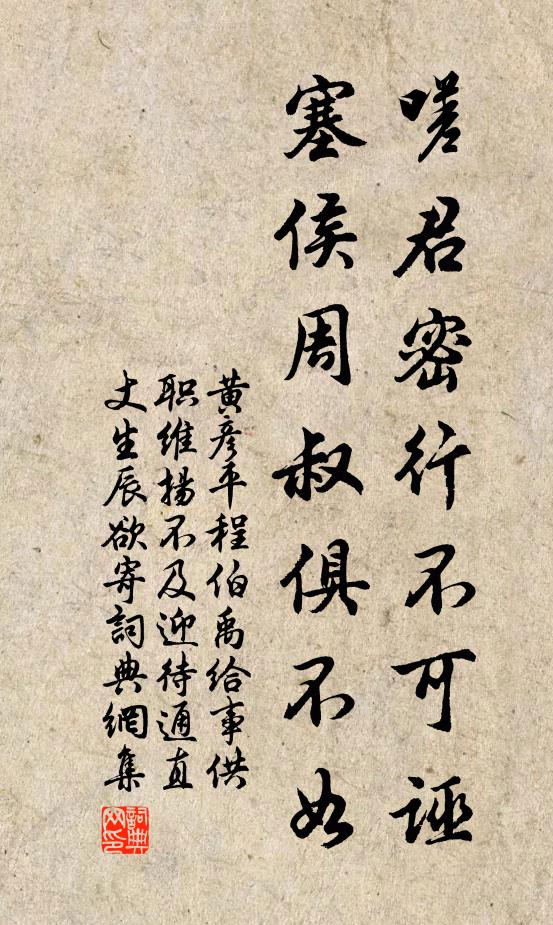 嗟君密行不可诬
塞侯周叔俱不如
黄彦平程伯禹给事供
职维扬不及迎待通直
丈生辰欲寄詞典網集
詞典
网印